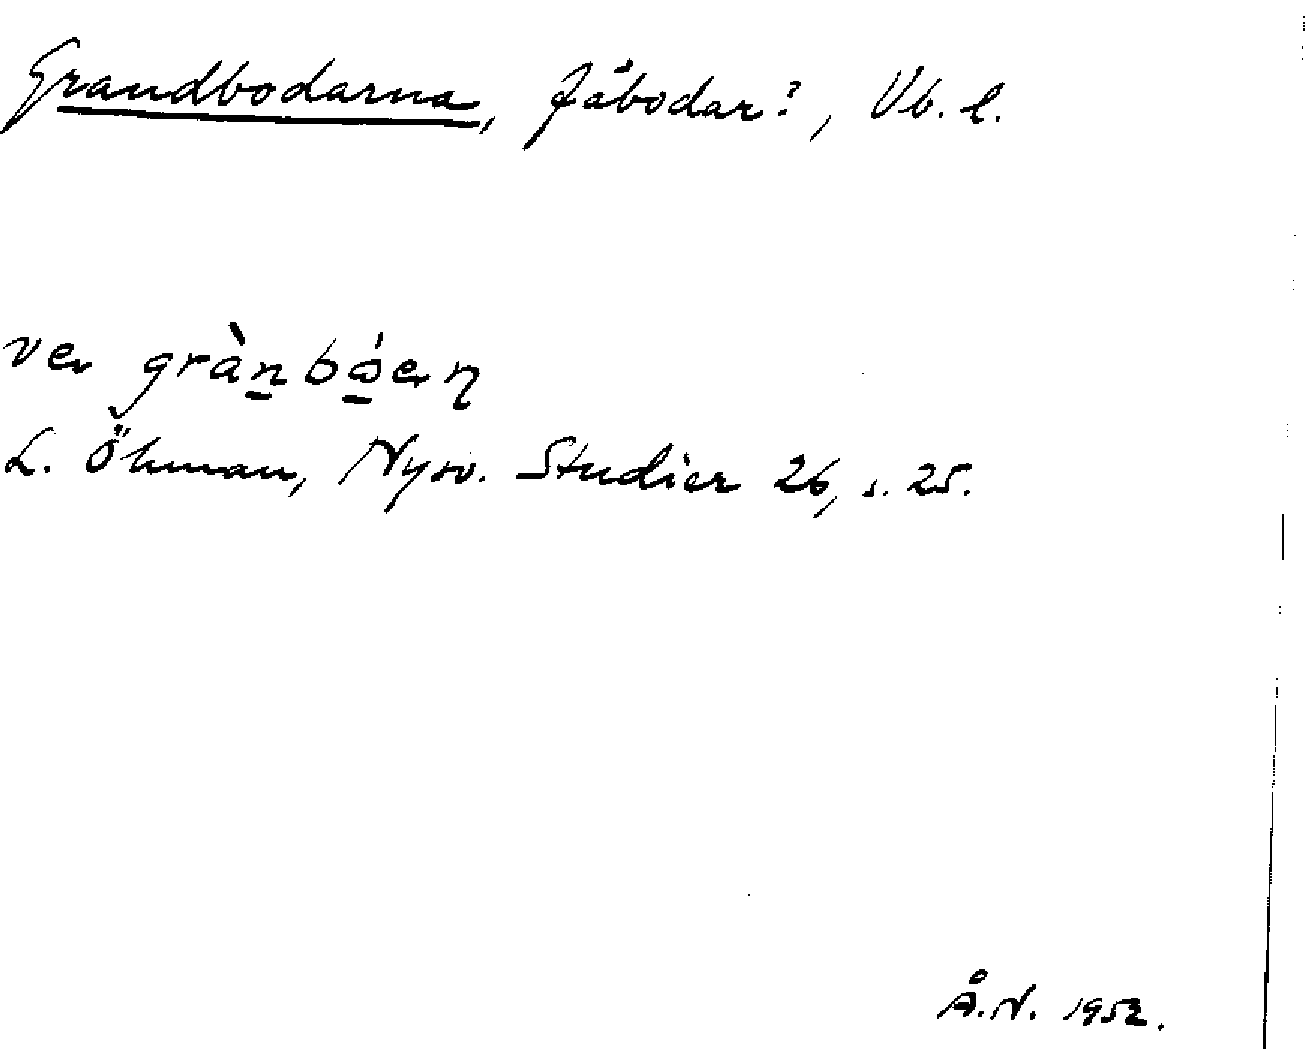 Grandbodarna, Fäbodar?, Vb. l.
ve grànbóen
L. Öhman, Nysv. Studier 26, s. 25.
Å.N. 1952.